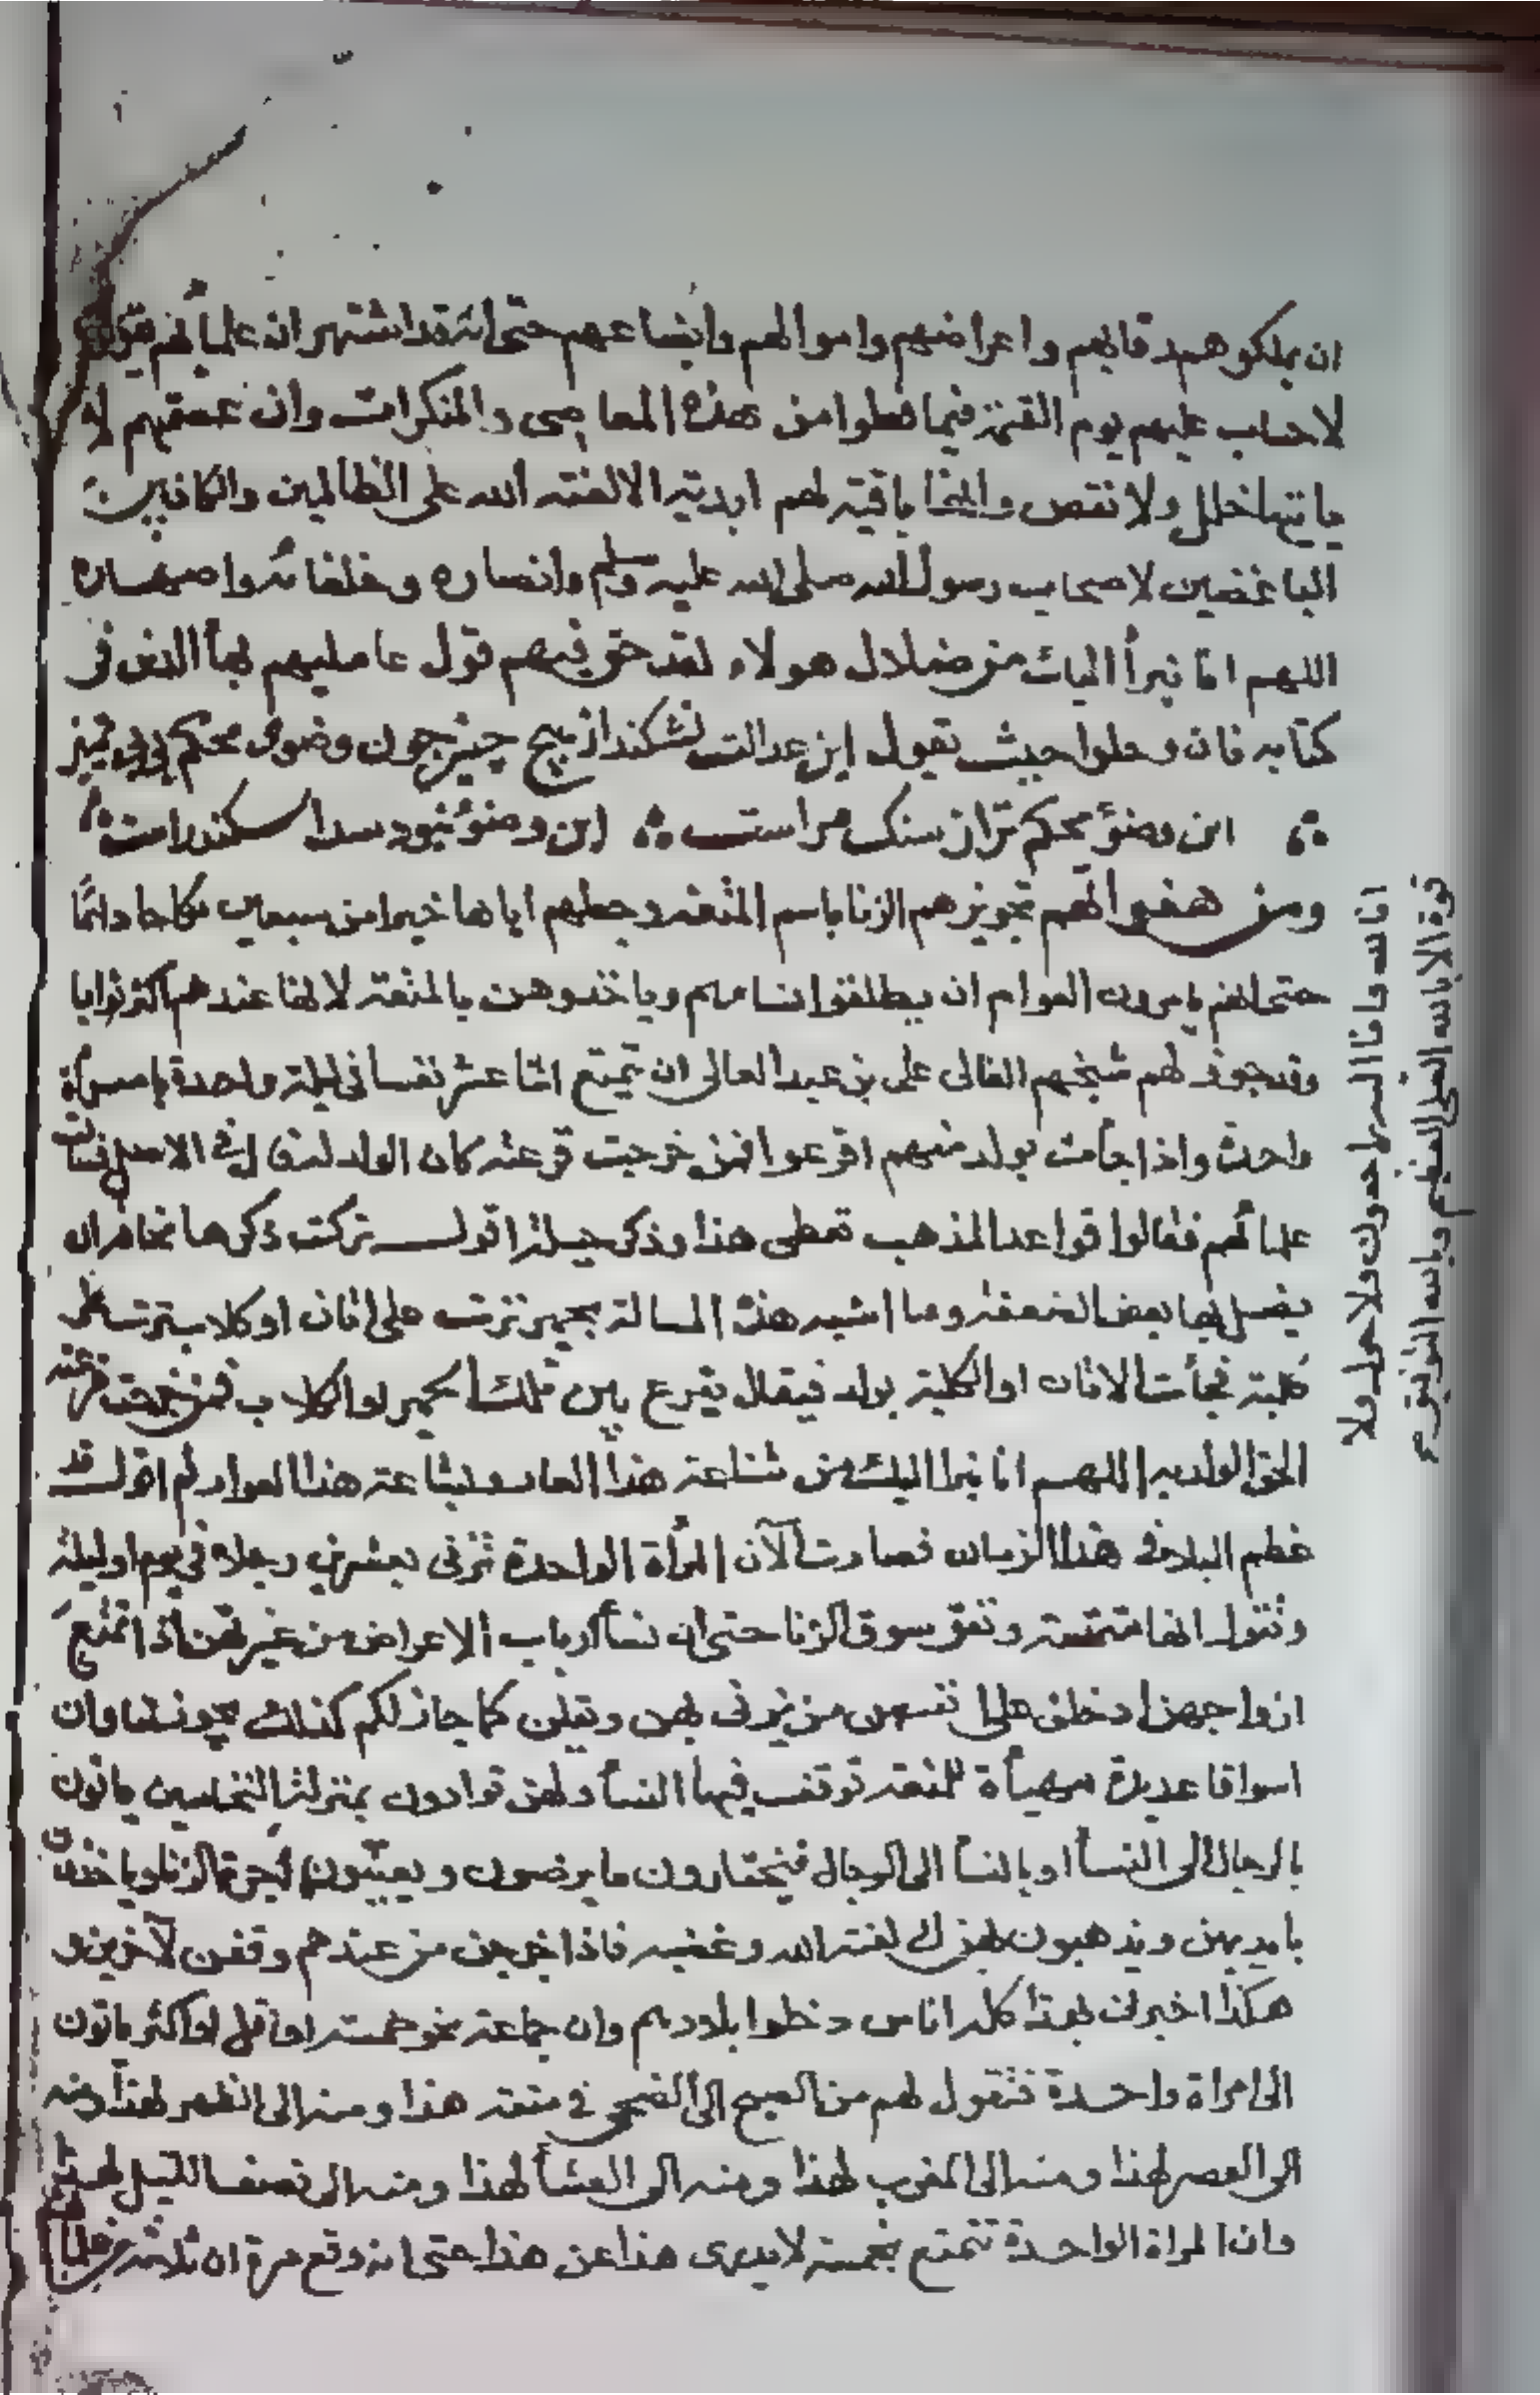 ان يملكوهم رقابهم واعراضهم واموالهم وابضاعهم حتى انه قد اشتهر ان علماءهم
لا حساب عليهم يوم القيمة فيما فعلوا من هذه المعاصى والمنكرات وان عصمتهم لا
ياتيها خلل ولا نقص باقية لهم ابدية الا لعنة الله على الظالمين والكافرين
الباغضين لاصحاب رسول الله صلى الله عليه وسلم وانصاره وخلفائه واصهاره
اللهم انا نبرأ اليك من ضلال هولاء لقد حق فيهم قول عامليهم بهأ الدين فى
كتابه نان وحلوا حيث يقول اين عدالت نشكند از هيچ چيز چون وضوى محكم بى بى تميز
اين وضوء محكم تر از سنك مراست ∴ اين وضوء نبود سد اسكندر است
ومن هفواتهم تجويزهم الزنا باسم المتعة وجعلهم اياها خيرا من سبعين نكاحا دائما
حتى انهم يامرون العوام ان يطلقوا نساءهم وياخذوهن بالمتعة لانها عندهم اكثر ثوابا
وقد جوز لهم شيخهم الغالى على بن عبد العالى ان تمتع اثنا عشر نفسا فى ليلة واحدة بامرأة
واحدة واذا جاءت بولد منهم اقرعوا فمن خرجت قرعته كان الولد له
علمائهم فقالوا قواعد المذهب تعطى هذا وذكر حيلة اقول تركت ذكرها مخافة ان
يضل بها بعض الضعفة وما اشبه هذه المسالة بحمير نزت على اتان او كلاب نزت على
كلبة فجأت الاتان او الكلبة بولد فيقال يقرع بين تلك الحمير او الكلاب فمن خرجت قرعته
الحق الولد به اللهم انا نبرا اليك من شناعة هذا العار وبشاعة هذا العوار ثم اقول قد
عظم البلاء فى هذا الزمان فصارت الآن المرأة الواحدة تزنى بعشرين رجلا فى يوم او ليلة
وتقول انها متمتعة وتنفق سوق الزنا حتى ان نسأ ارباب الاعراض من غيرتهن اذا تمتع
ازواجهن ادخلن على انفسهن من يزنى بهن ويقلن كما جاز لكم كذلك يجوز لنا وان
اسواقا عديدة مهيأة للمتعة توقف فيها النسأ ولهن قوادون بمنزلة النخاسين ياتون
بالرجال الى النسأ او بالنسأ الى الرجال فيختارون ما يرضون ويعينون اجرة الزنا وياخذون
بايديهن ويذهبون بهن الى لعنة الله وغضبه فاذا خرجن من عندهم وقفن لآخرين و
هكذا اخبرنى بهذا كله اناس دخلوا بلادهم وان جماعة نحو خمسة او اقل او اكثر ياتون
الى امراة واحدة فتقول لهم من الصبح الى الضحى فى متعة هذا ومنه الى الظهر لهذا ومنه
الى العصر لهذا ومنه الى المغرب لهذا ومنه الى العشأ لهذا ومنه الى نصف الليل لهذا
وان المراة الواحدة تتمتع بخمسة لا يدرى هذا عن هذا حتى انه وقع مرة ان ثلاثة
انا لله وانا اليه راجعون ولا حول ولا
قوة الا بالله العلى العظيم وبالله التوفيق